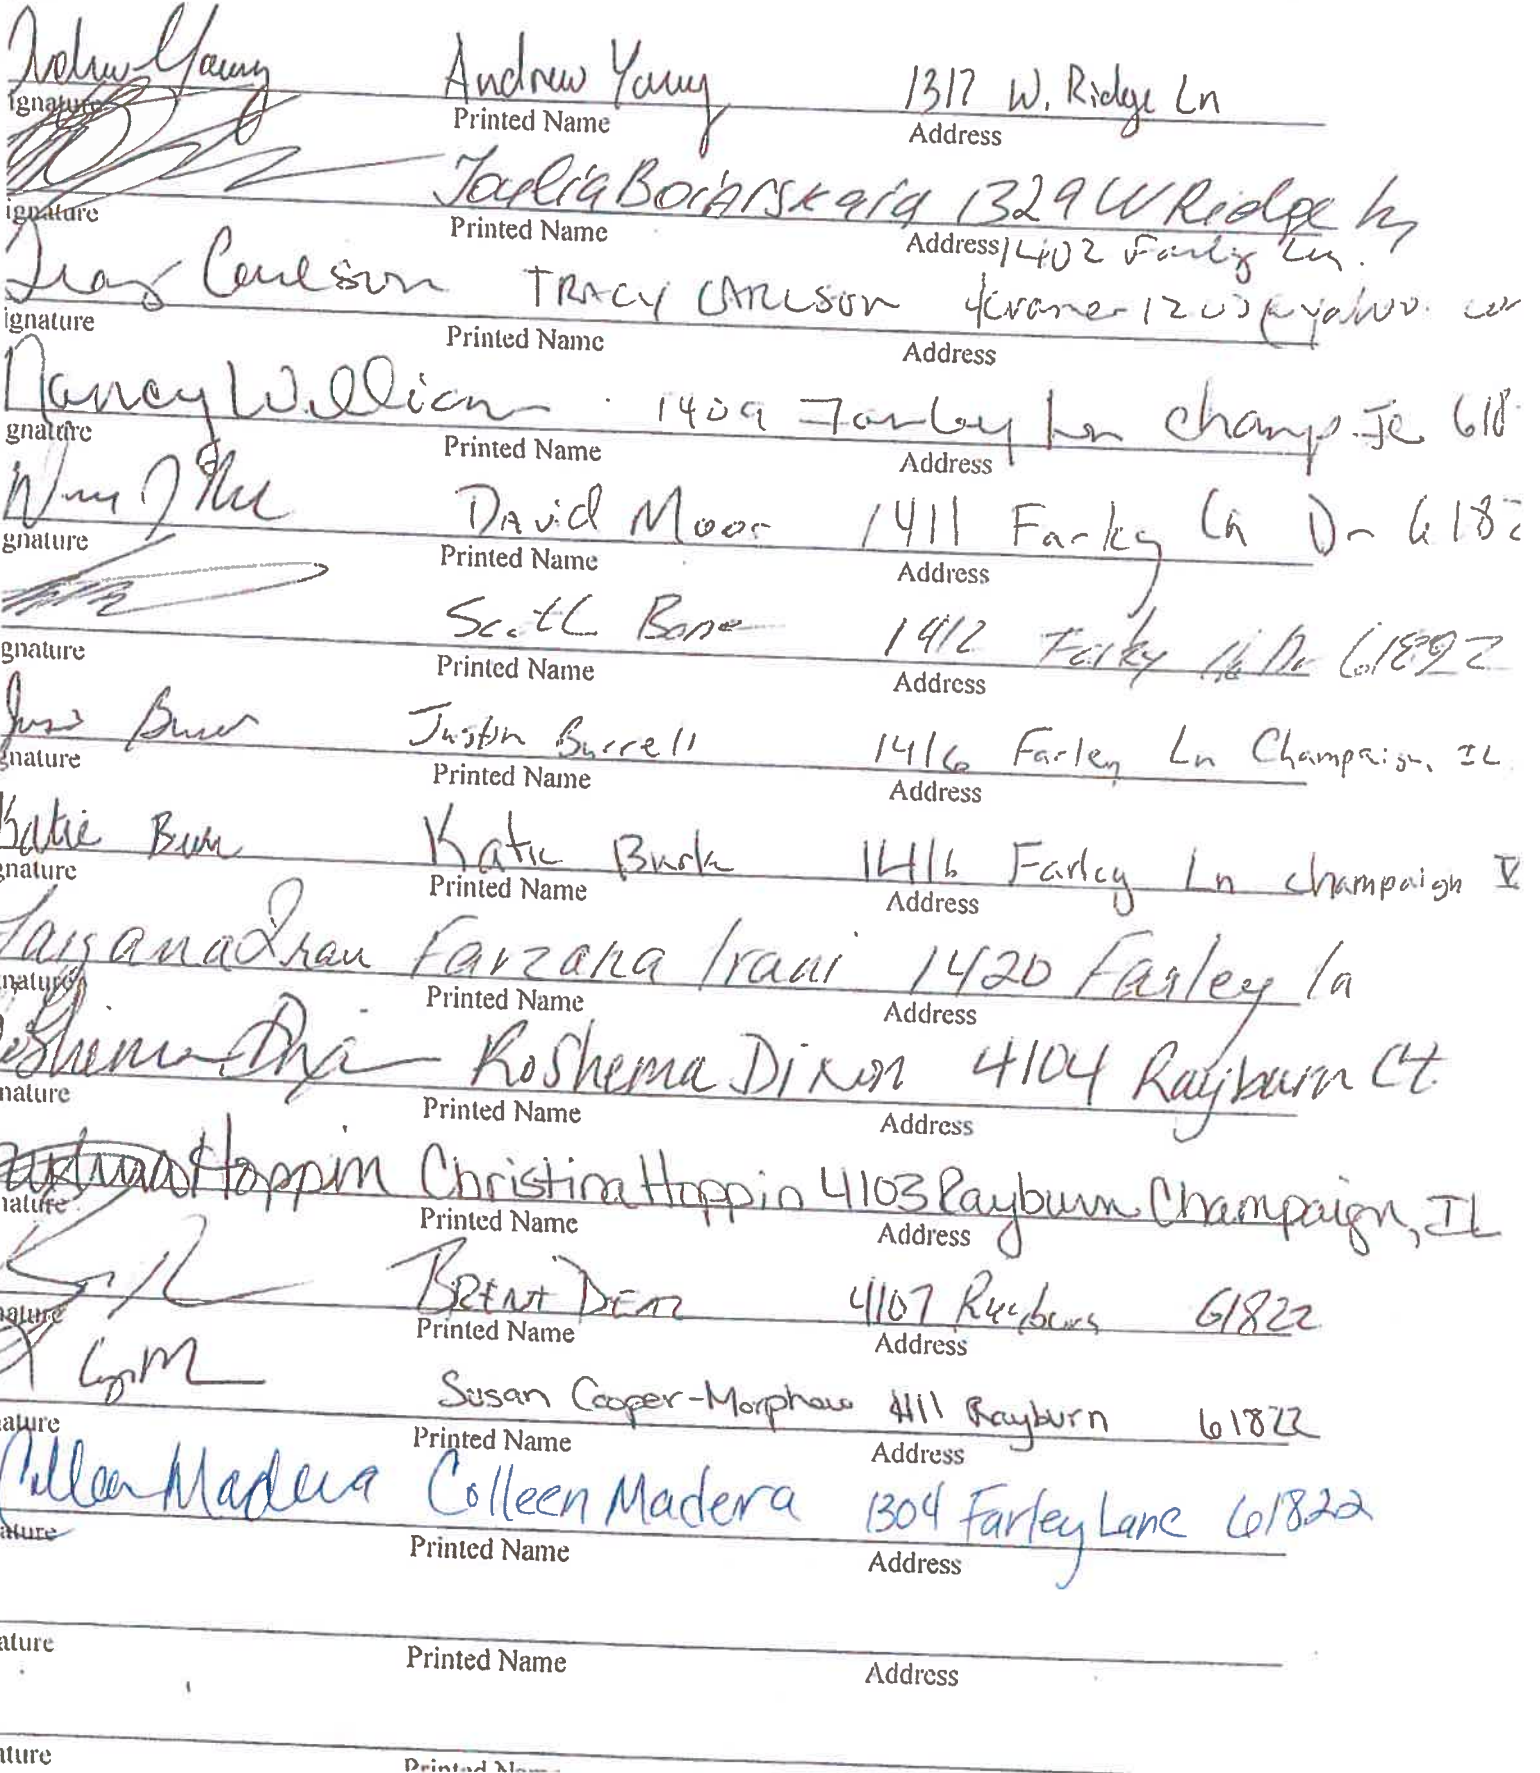 Andrew Young Andrew Young 1317 W. Ridge Ln
ignature Printed Name Address
1329 W Ridge Ln
ignature Printed Name Address 1402 Farley Ln.
Tracy Carlson TRACY CARLSON
ignature Printed Name Address
Nancy William 1409 Farley Ln Champ IL 618
gnature Printed Name Address
David Moor 1411 Farley Ln Dr 6182
gnature Printed Name Address
Scott Bone 1412 Farley Ln Dr 61822
gnature Printed Name Address
Justin Burrell 1416 Farley Ln Champaign, IL
gnature Printed Name Address
Katie Katie 1416 Farley Ln champaign
gnature Printed Name Address
Farzana Irani Farzana Irani 1420 Farley ln
nature Printed Name Address
Roshema Dixon 4104 Rayburn Ct.
nature Printed Name Address
Hoppin Christina Hoppin 4103 Rayburn Champaign, IL
nature Printed Name Address
BRENT 4107 Rayburn 61822
nature Printed Name Address
Susan Cooper-Morphew 4111 Rayburn 61822
ature Printed Name Address
Colleen Madera Colleen Madera 1304 Farley Lane 61822
ature Printed Name Address
ature Printed Name Address
ature Printed Name